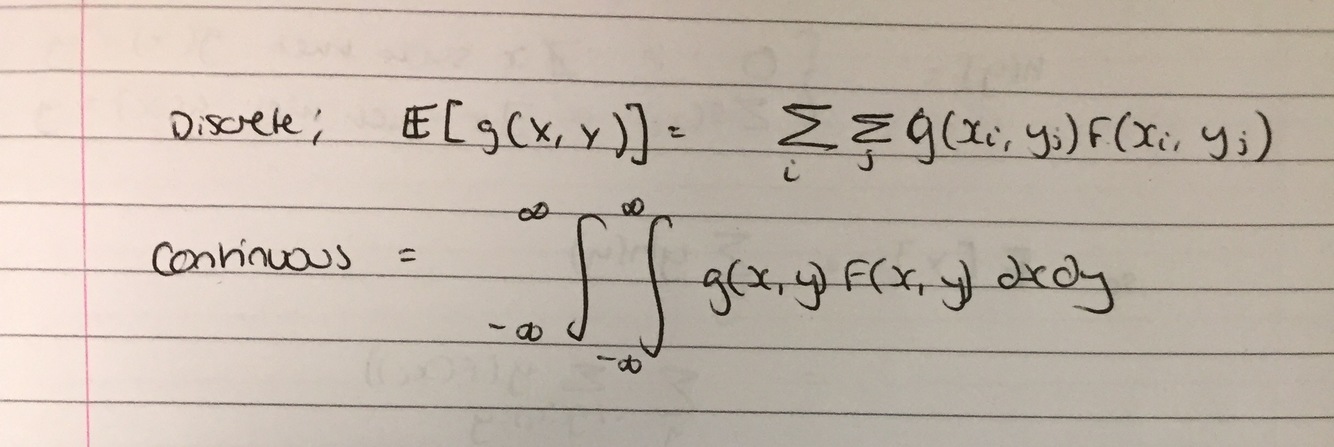 Discrete; 𝔼[g(X, Y)] = ∑_i ∑_j g(x_i, y_j) F(x_i, y_j)
Continuous = ∫_{-∞}^{∞} ∫_{-∞}^{∞} g(x, y) F(x, y) dx dy